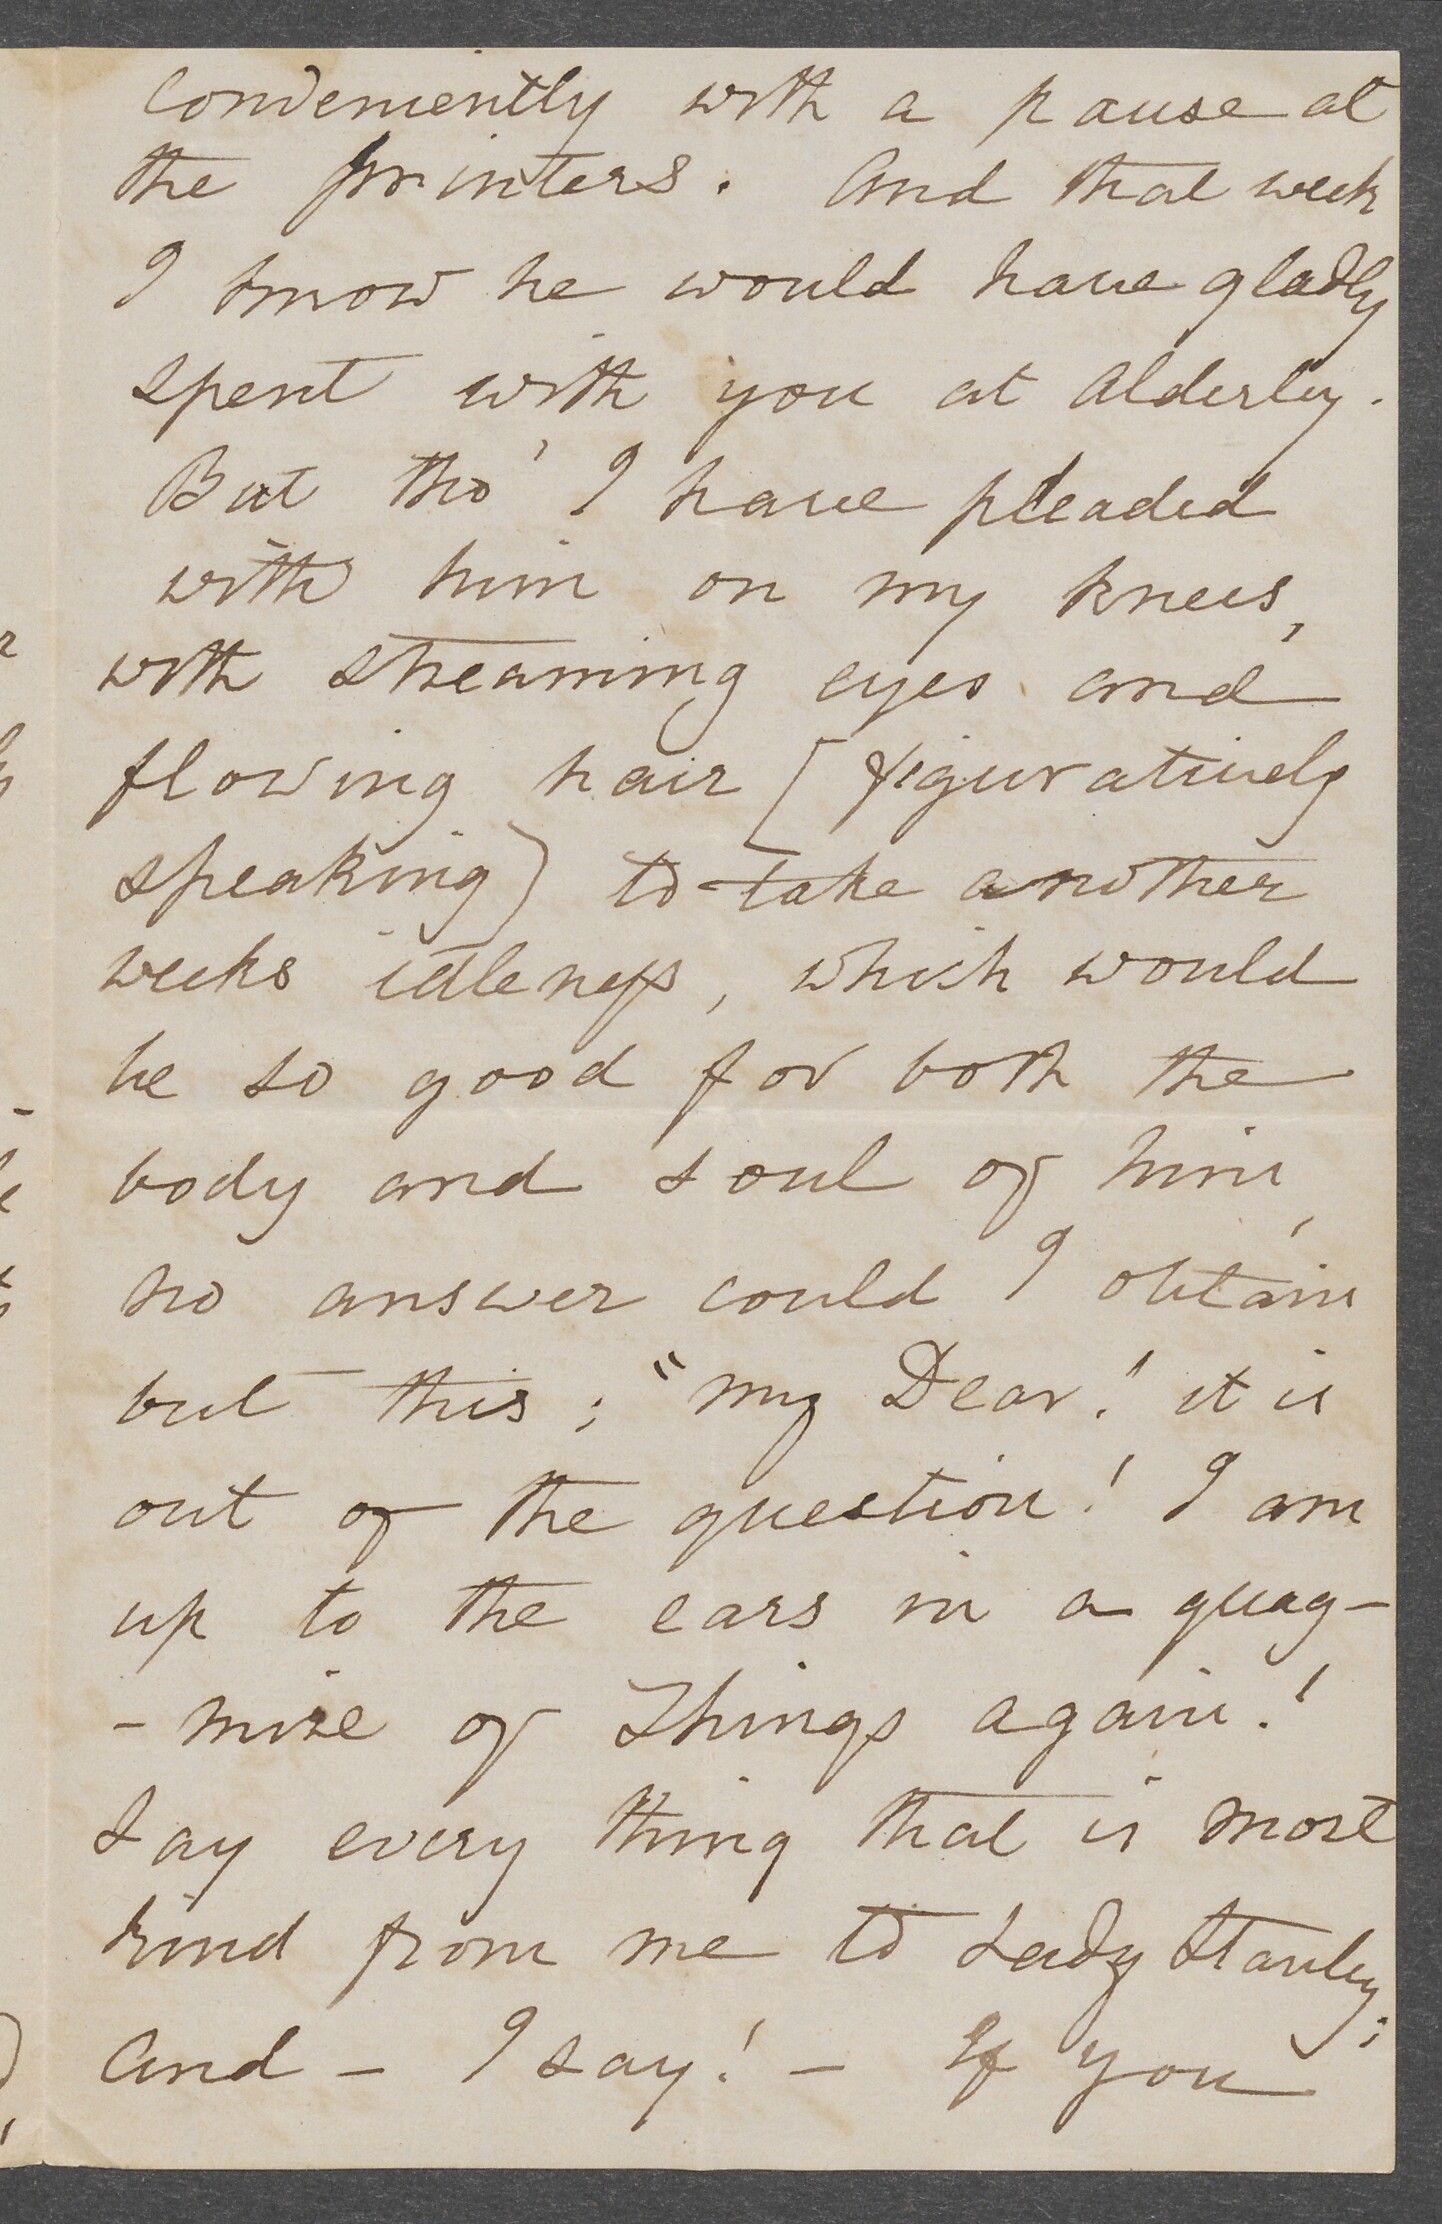 conveniently with a pause at
the printers. And that week
I know he would have gladly
spent with you at Alderley.
But tho' I have pleaded
with him on my knees,
with streaming eyes and
flowing hair [figuratively
speaking) to take another
weeks idleness, which would
be so good for both the
body and soul of him,
no answer could I obtain
but this; "my Dear! it is
out of the question! I am
up to the ears in a quag-
-mire of Things again!
Say every thing that is most
kind from me to Lady Stanley;
and - I say! - If you